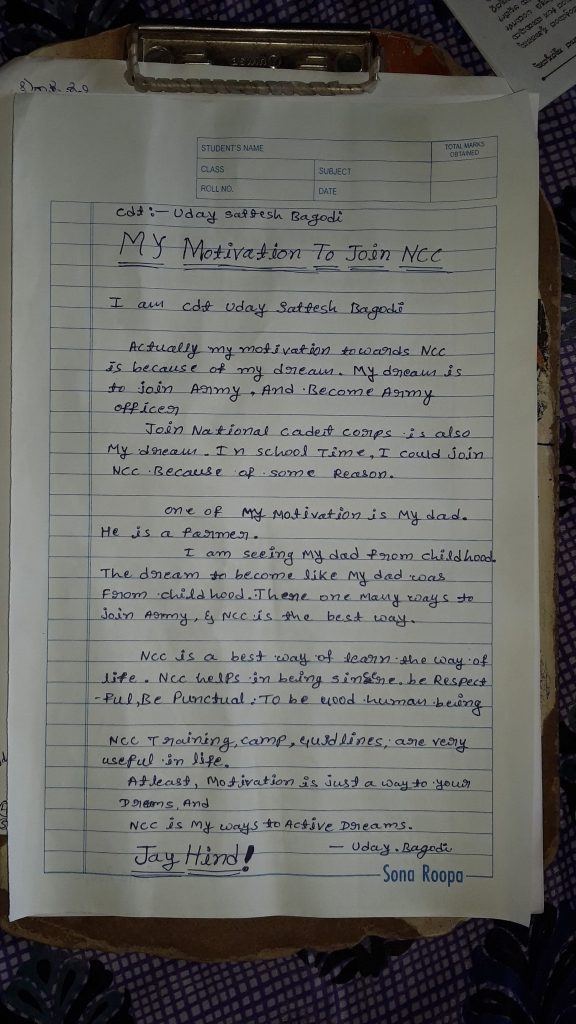 STUDENT'S NAME
TOTAL MARKS OBTAINED
CLASS
SUBJECT
ROLL NO.
DATE
Cdt :- Uday Sattesh Bagodi
MY Motivation To Join NCC
I am cdt Uday Sattesh Bagodi
Actually my motivation towards NCC
is because of my dream. My dream is
to join Army, And Become Army
officer
Join National cadet corps is also
My dream. In school Time, I could join
NCC Because of some Reason.
One of My Motivation is My dad.
He is a farmer.
I am seeing My dad from childhood.
The dream to become like My dad was
From childhood. There one Many ways to
join Army, & NCC is the best way.
NCC is a best way of learn the way of
life. NCC helps in being sincere. be Respect
-ful, Be Punctual, To be good human being
NCC Training, camp, guidlines, are very
useful in life.
Atleast, Motivation is just a way to your
Dreams, And
NCC is My ways to Active Dreams.
- Uday. Bagodi
Jay Hind!
Sona Roopa